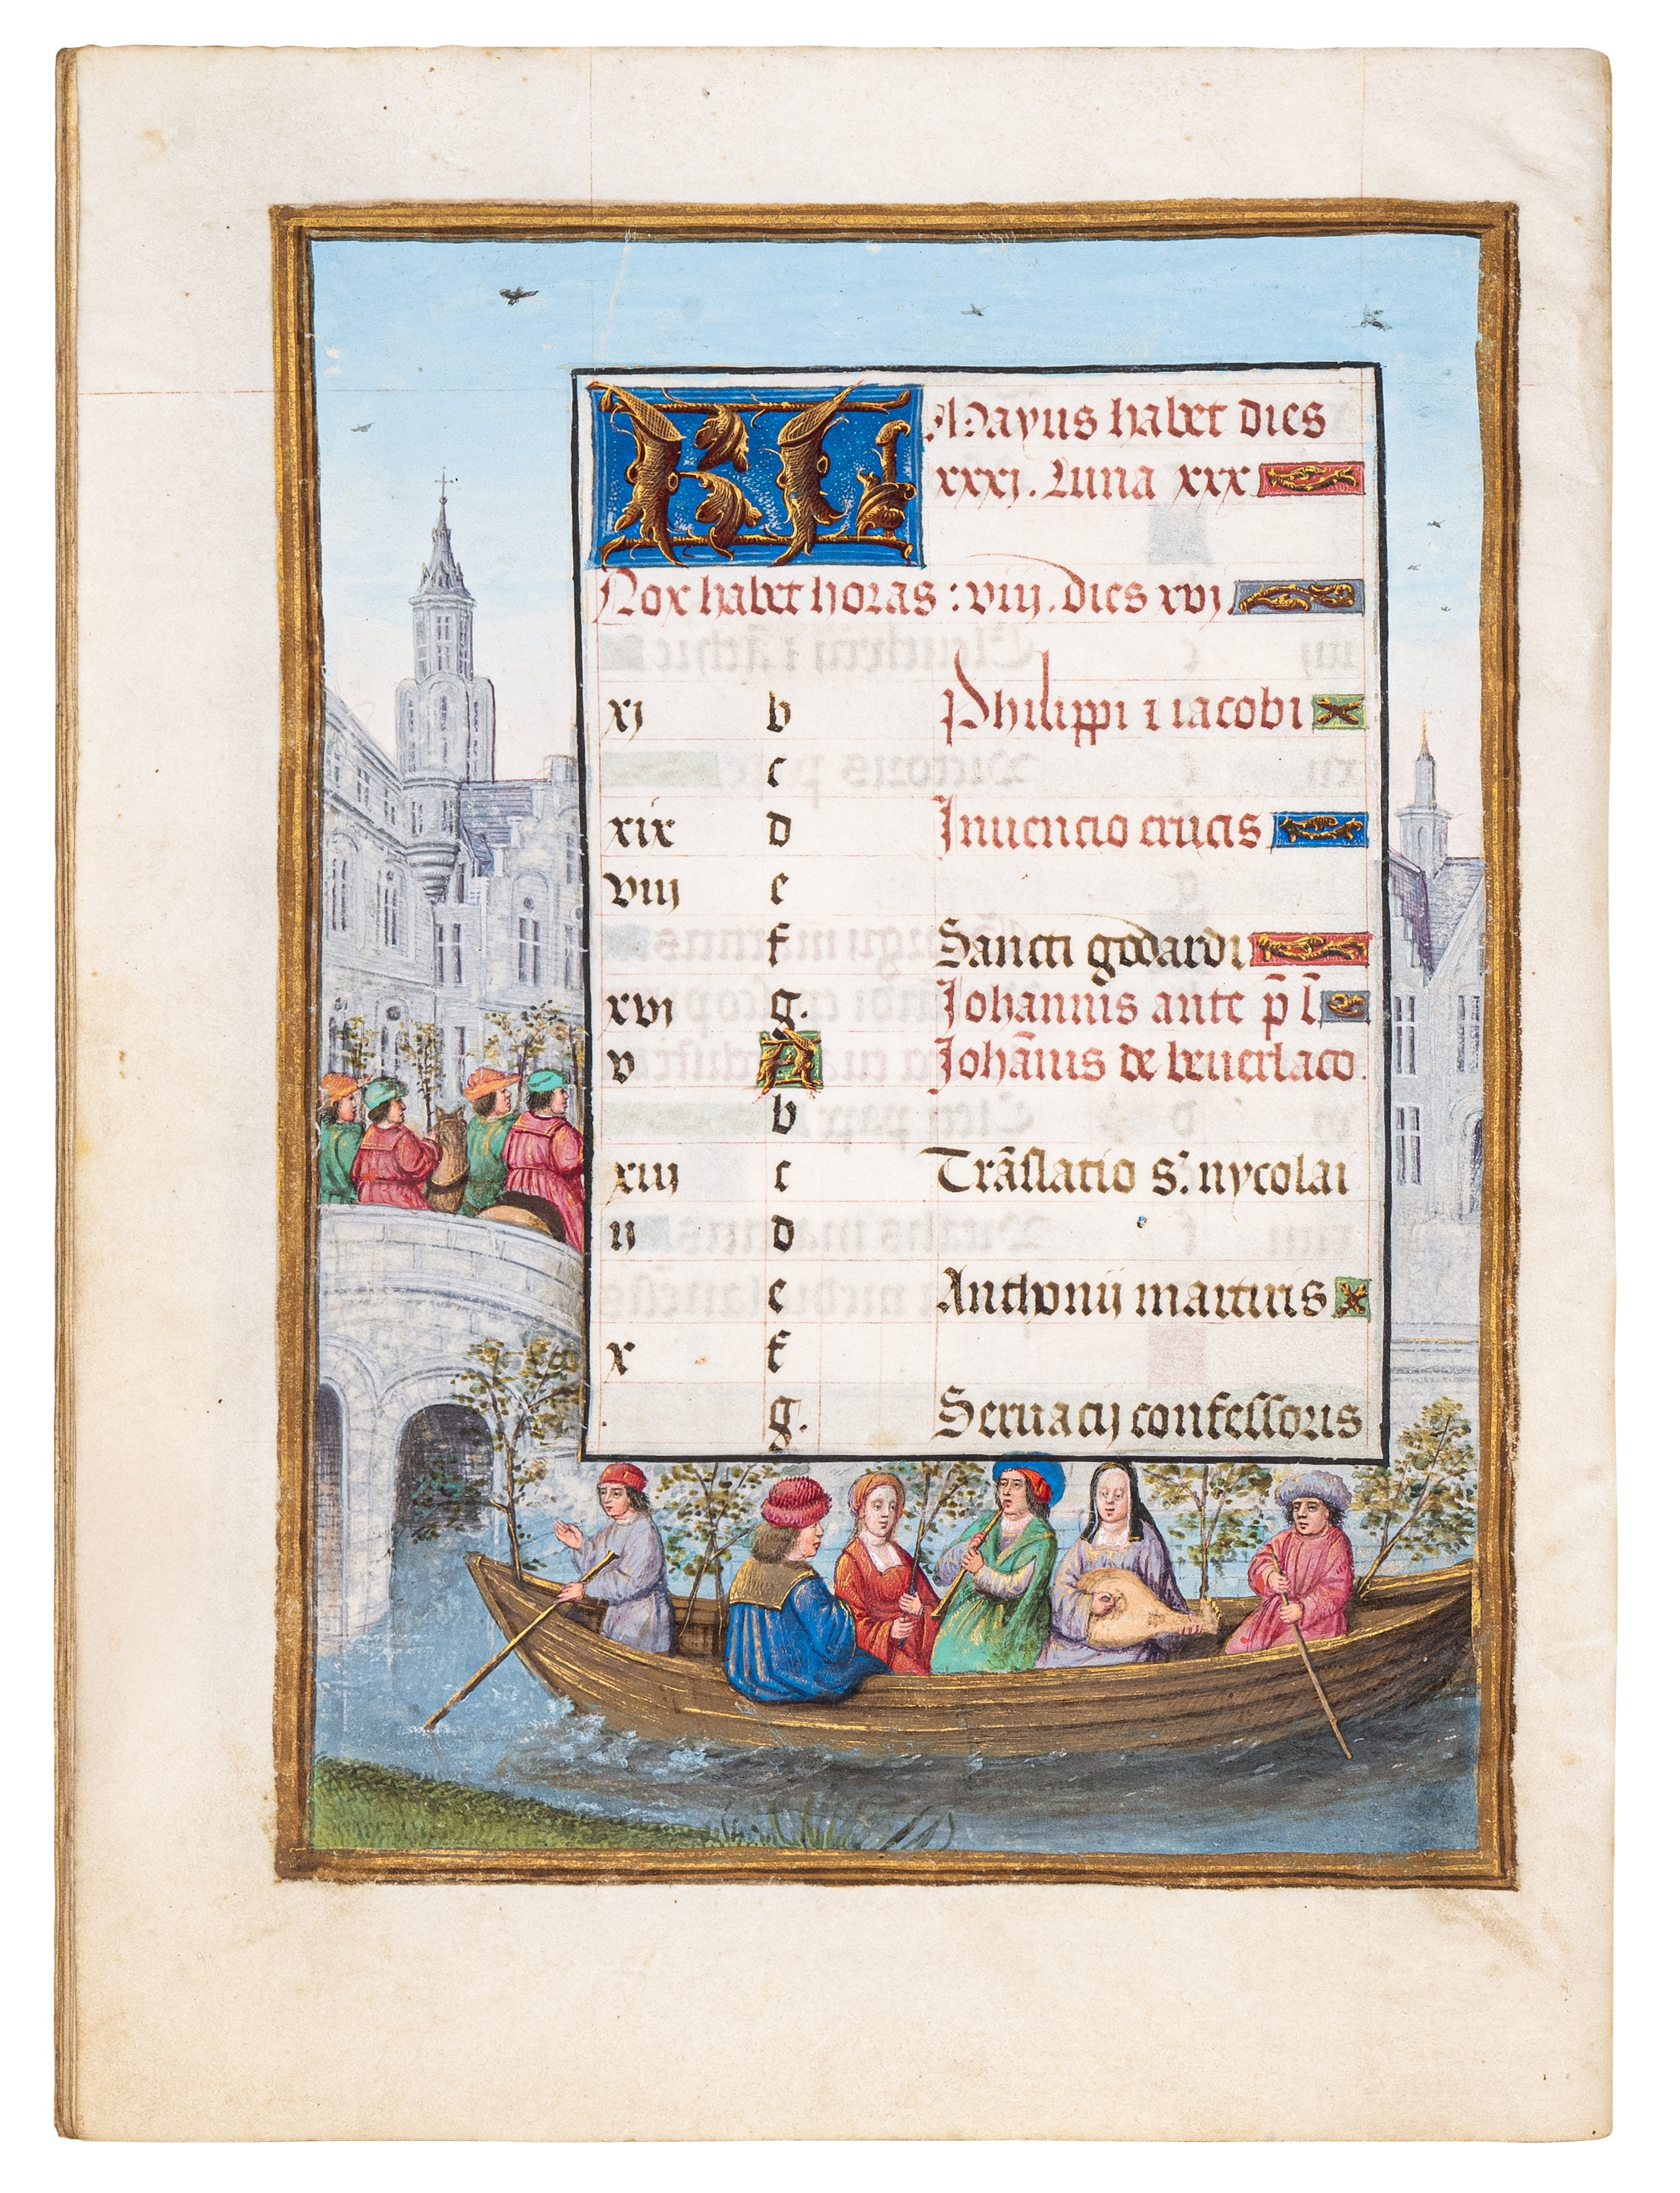 KL Mayus habet dies
xxxj. Luna xxx
Nox habet horas : viij. dies xvj.
xj b Philippi ⁊ iacobi
c
xix d Inuencio crucis
viij e
f Sancti godardi
xvj g. Iohannis ante p̄ l̄
v A Ioha̅nis de beuerlaco.
b
xiij c Tra̅slatio s'. nycolai
ij d
e Anthonij martiris
x f
g. Seruacij confessoris